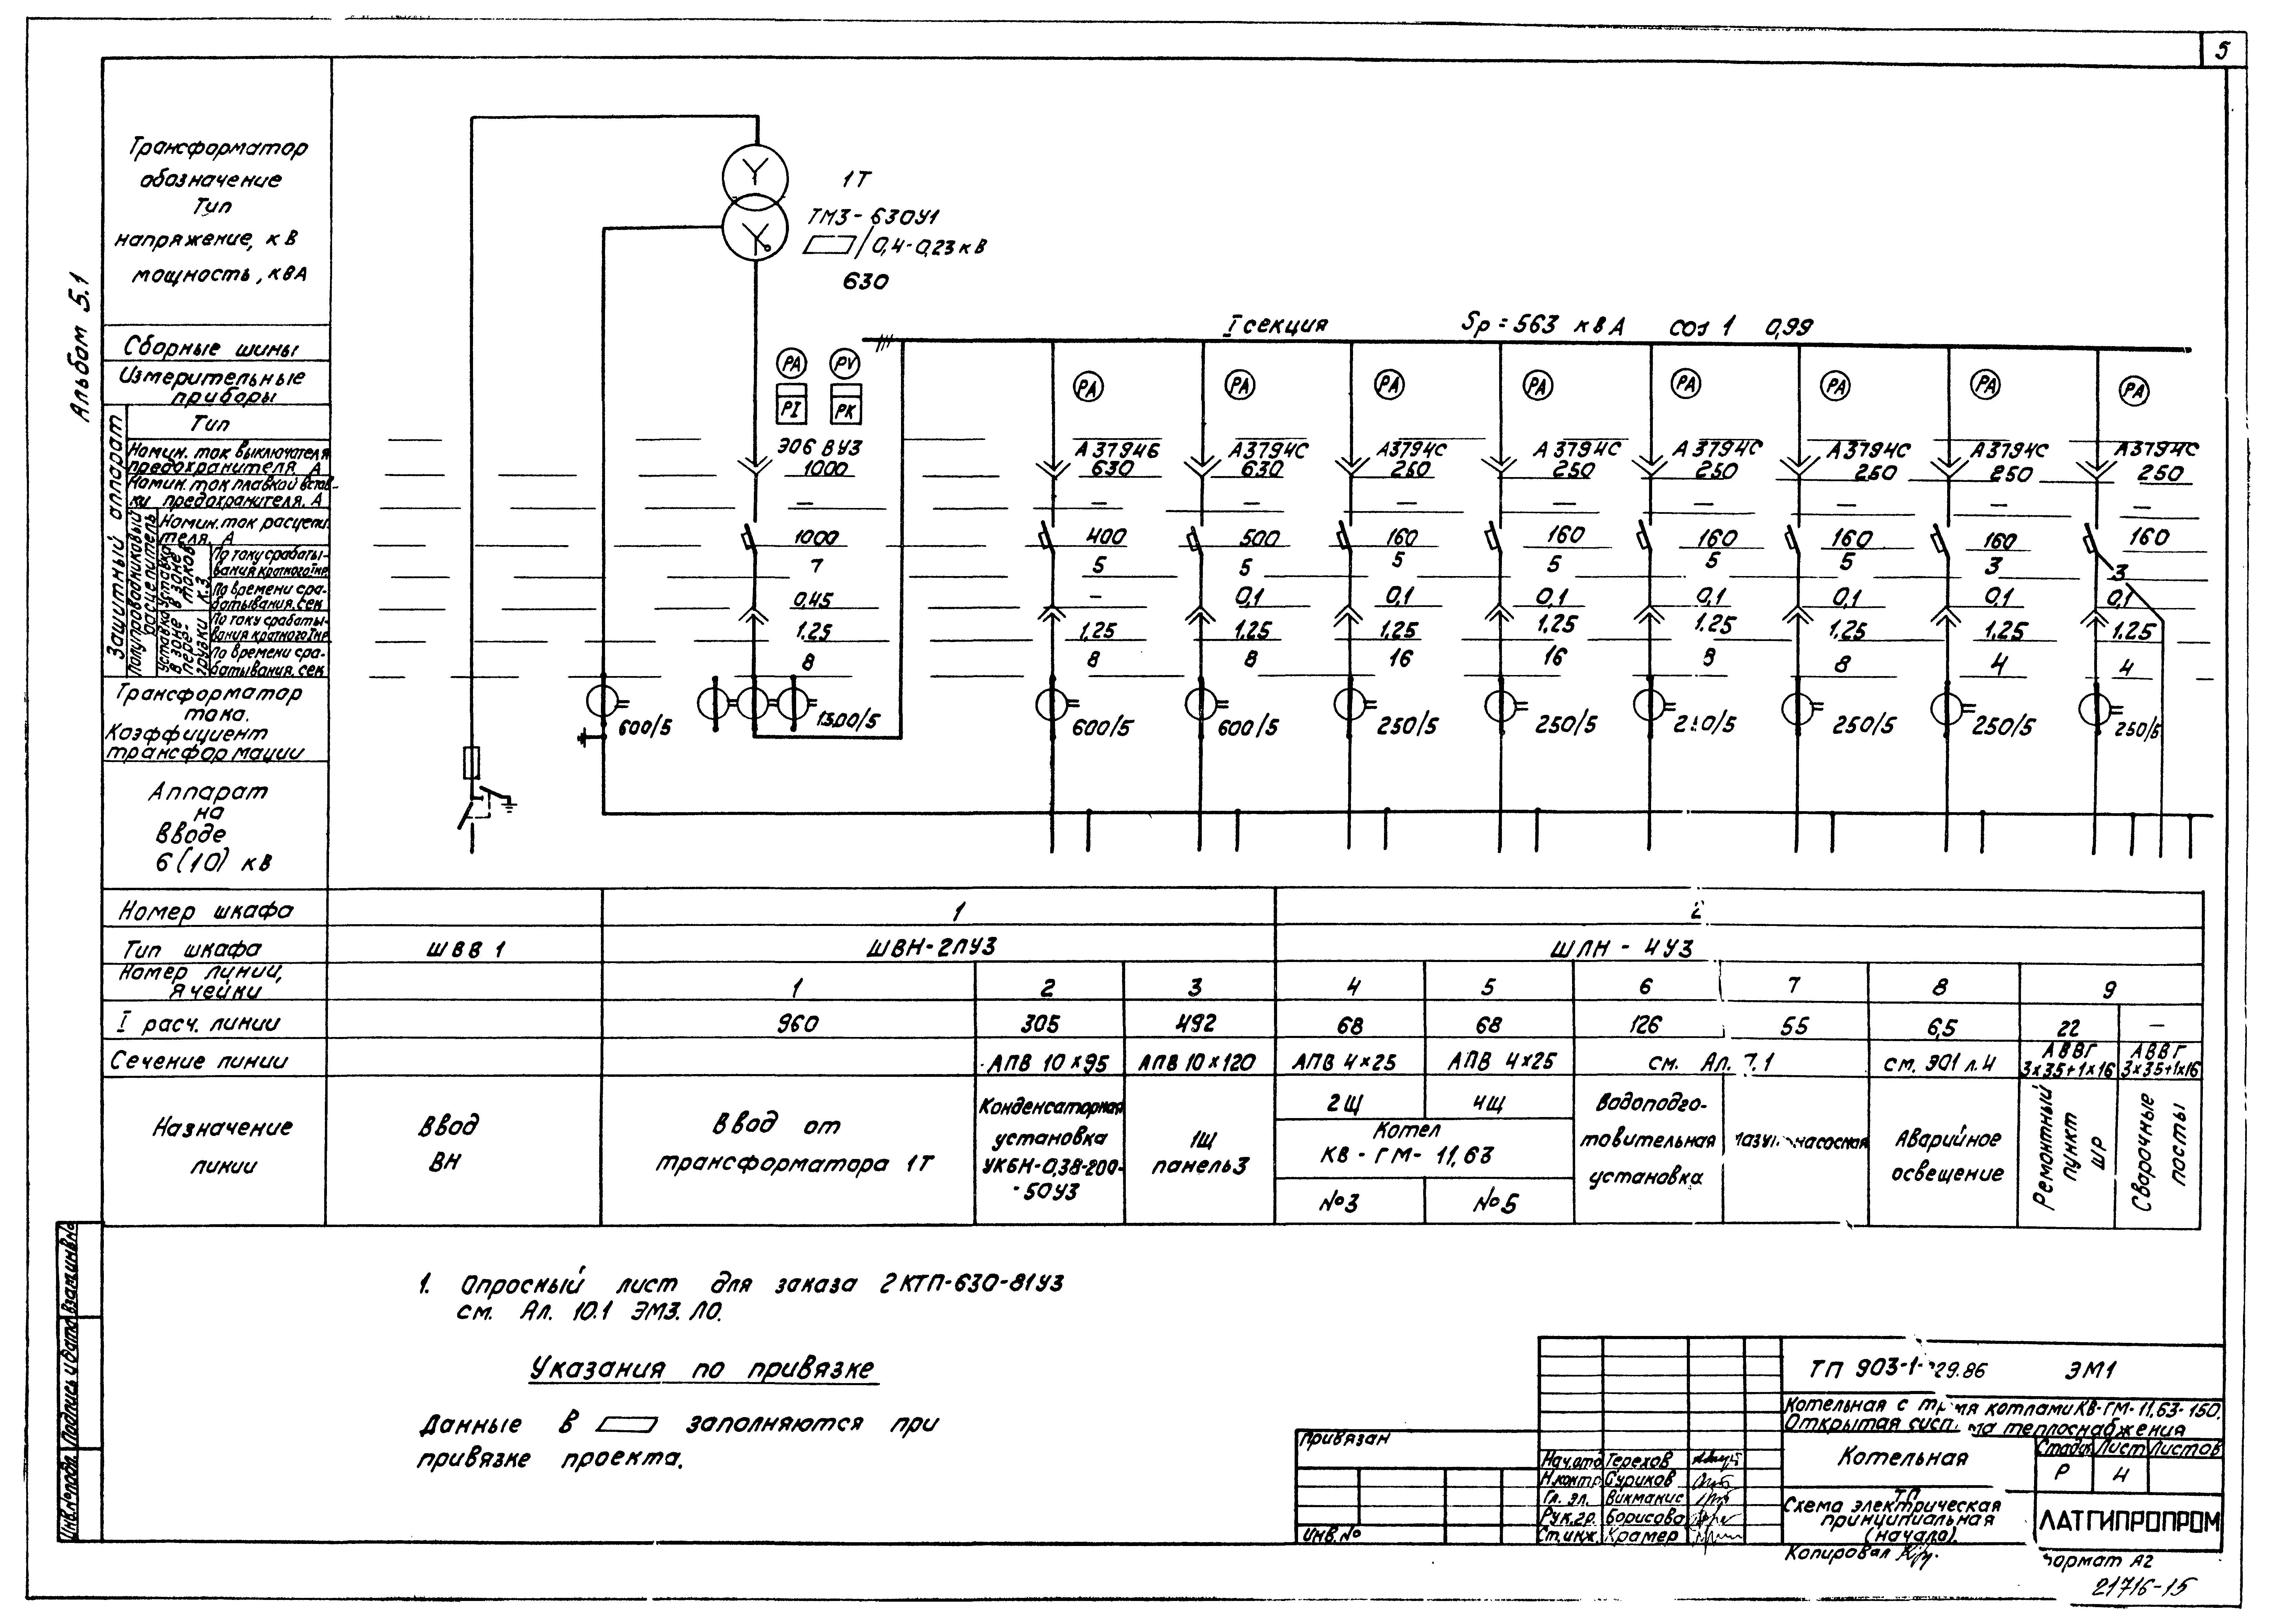 5
Альбом 5.1
Трансформатор
обозначение
Тип
напряжение, кВ
мощность, кВА
1Т
ТМЗ-630У1
/0,4-0,23кВ
630
Сборные шины
I секция Sp=563 кВА cos 1 0,99
Измерительные
приборы
PA PV
PI PK
PA PA PA PA PA PA PA PA
Защитный аппарат
Тип
Э06ВУЗ А3794Б А3794С А3794С А3794С А3794С А3794С А3794С А3794С
Номин. ток выключателя
предохранителя А
1000 630 630 250 250 250 250 250 250
Номин. ток плавкой встав-
ки предохранителя. А
— — — — — — — — —
Полупроводниковый
расцепитель
Номин. ток расцепи.
теля, А
1000 400 500 160 160 160 160 160 160
Уставка
в зоне
токов
К.З.
По току срабаты-
вания кратного Iнр
7 5 5 5 5 5 5 3 3
По времени сра-
батывания. сек
0,45 – 0,1 0,1 0,1 0,1 0,1 0,1 0,1
Уставка
в зоне
пере-
грузки
По току срабаты-
вания кратного Iнр
1,25 1,25 1,25 1,25 1,25 1.25 1,25 1,25 1.25
По времени сра-
батывания. сек
8 8 8 16 16 8 4 4
Трансформатор
тока.
Коэффициент
трансформации
600/5 1500/5 600/5 600/5 250/5 250/5 250/5 250/5 250/5
Аппарат
на
вводе
6(10) кВ
Номер шкафа 1 2
Тип шкафа ШВВ 1 ШВН-2ПУЗ ШЛН - 4УЗ
Номер линии,
ячейки
1 2 3 4 5 6 7 8 9
I расч. линии 960 305 492 68 68 126 55 6,5 22 —
Сечение линии АПВ 10×95 АПВ 10×120 АПВ 4×25 АПВ 4×25 см. Ал. 7.1 см. ЭО1 л.4
АВВГ
3×35+1×16
АВВГ
3×35+1×16
Назначение
линии
Ввод
ВН
Ввод от
трансформатора 1Т
Конденсаторная
установка
УКБН-0,38-200-
-50УЗ
1Щ
панель3
2Щ 4Щ
Котел
КВ-ГМ-11,63
№3 №5
Водоподго-
товительная
установка
Аварийное
освещение
Ремонтный
пункт
ШР
Сварочные
посты
1. Опросный лист для заказа 2КТП-630-81УЗ
см. Ал. 10.1 ЭМ3.ЛО.
Указания по привязке
Данные в заполняются при
привязке проекта.
Взам.инв.№
Подпись и дата
Инв.№подл.
Привязан
Инв.№
Нач.отд Терехов
Н.контр Суриков
Гл. эл. Викманис
Рук.гр. Борисова
Ст.инж. Крамер
ТП 903-1- 29.86 ЭМ1
Котельная с тремя котлами КВ-ГМ-11,63-150.
Открытая система теплоснабжения
Котельная
Стадия Лист Листов
Р 4
ТП
Схема электрическая
принципиальная
(начало).
ЛАТГИПРОПРОМ
Копировал
формат А2
21716-15